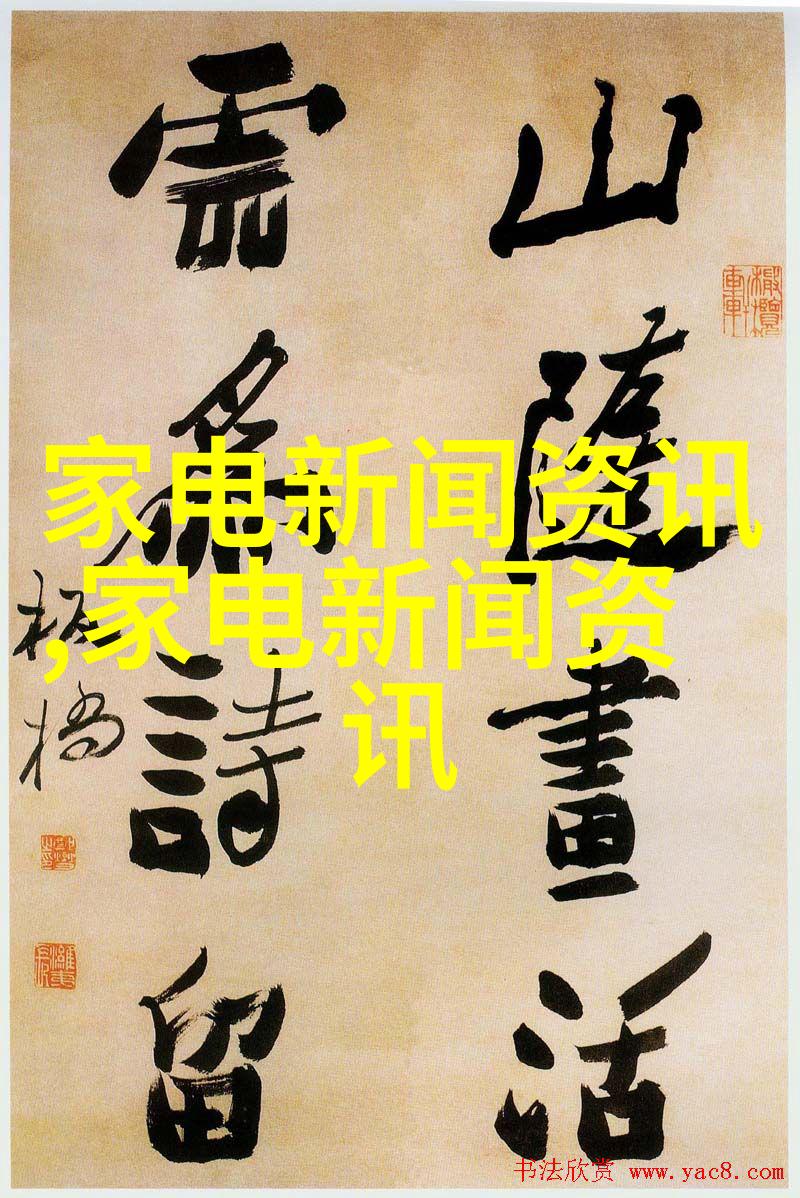 山隨畫活
雲為詩留
板橋
家电新闻资讯
,家电新闻资
讯
书法欣赏 www.yac8.com